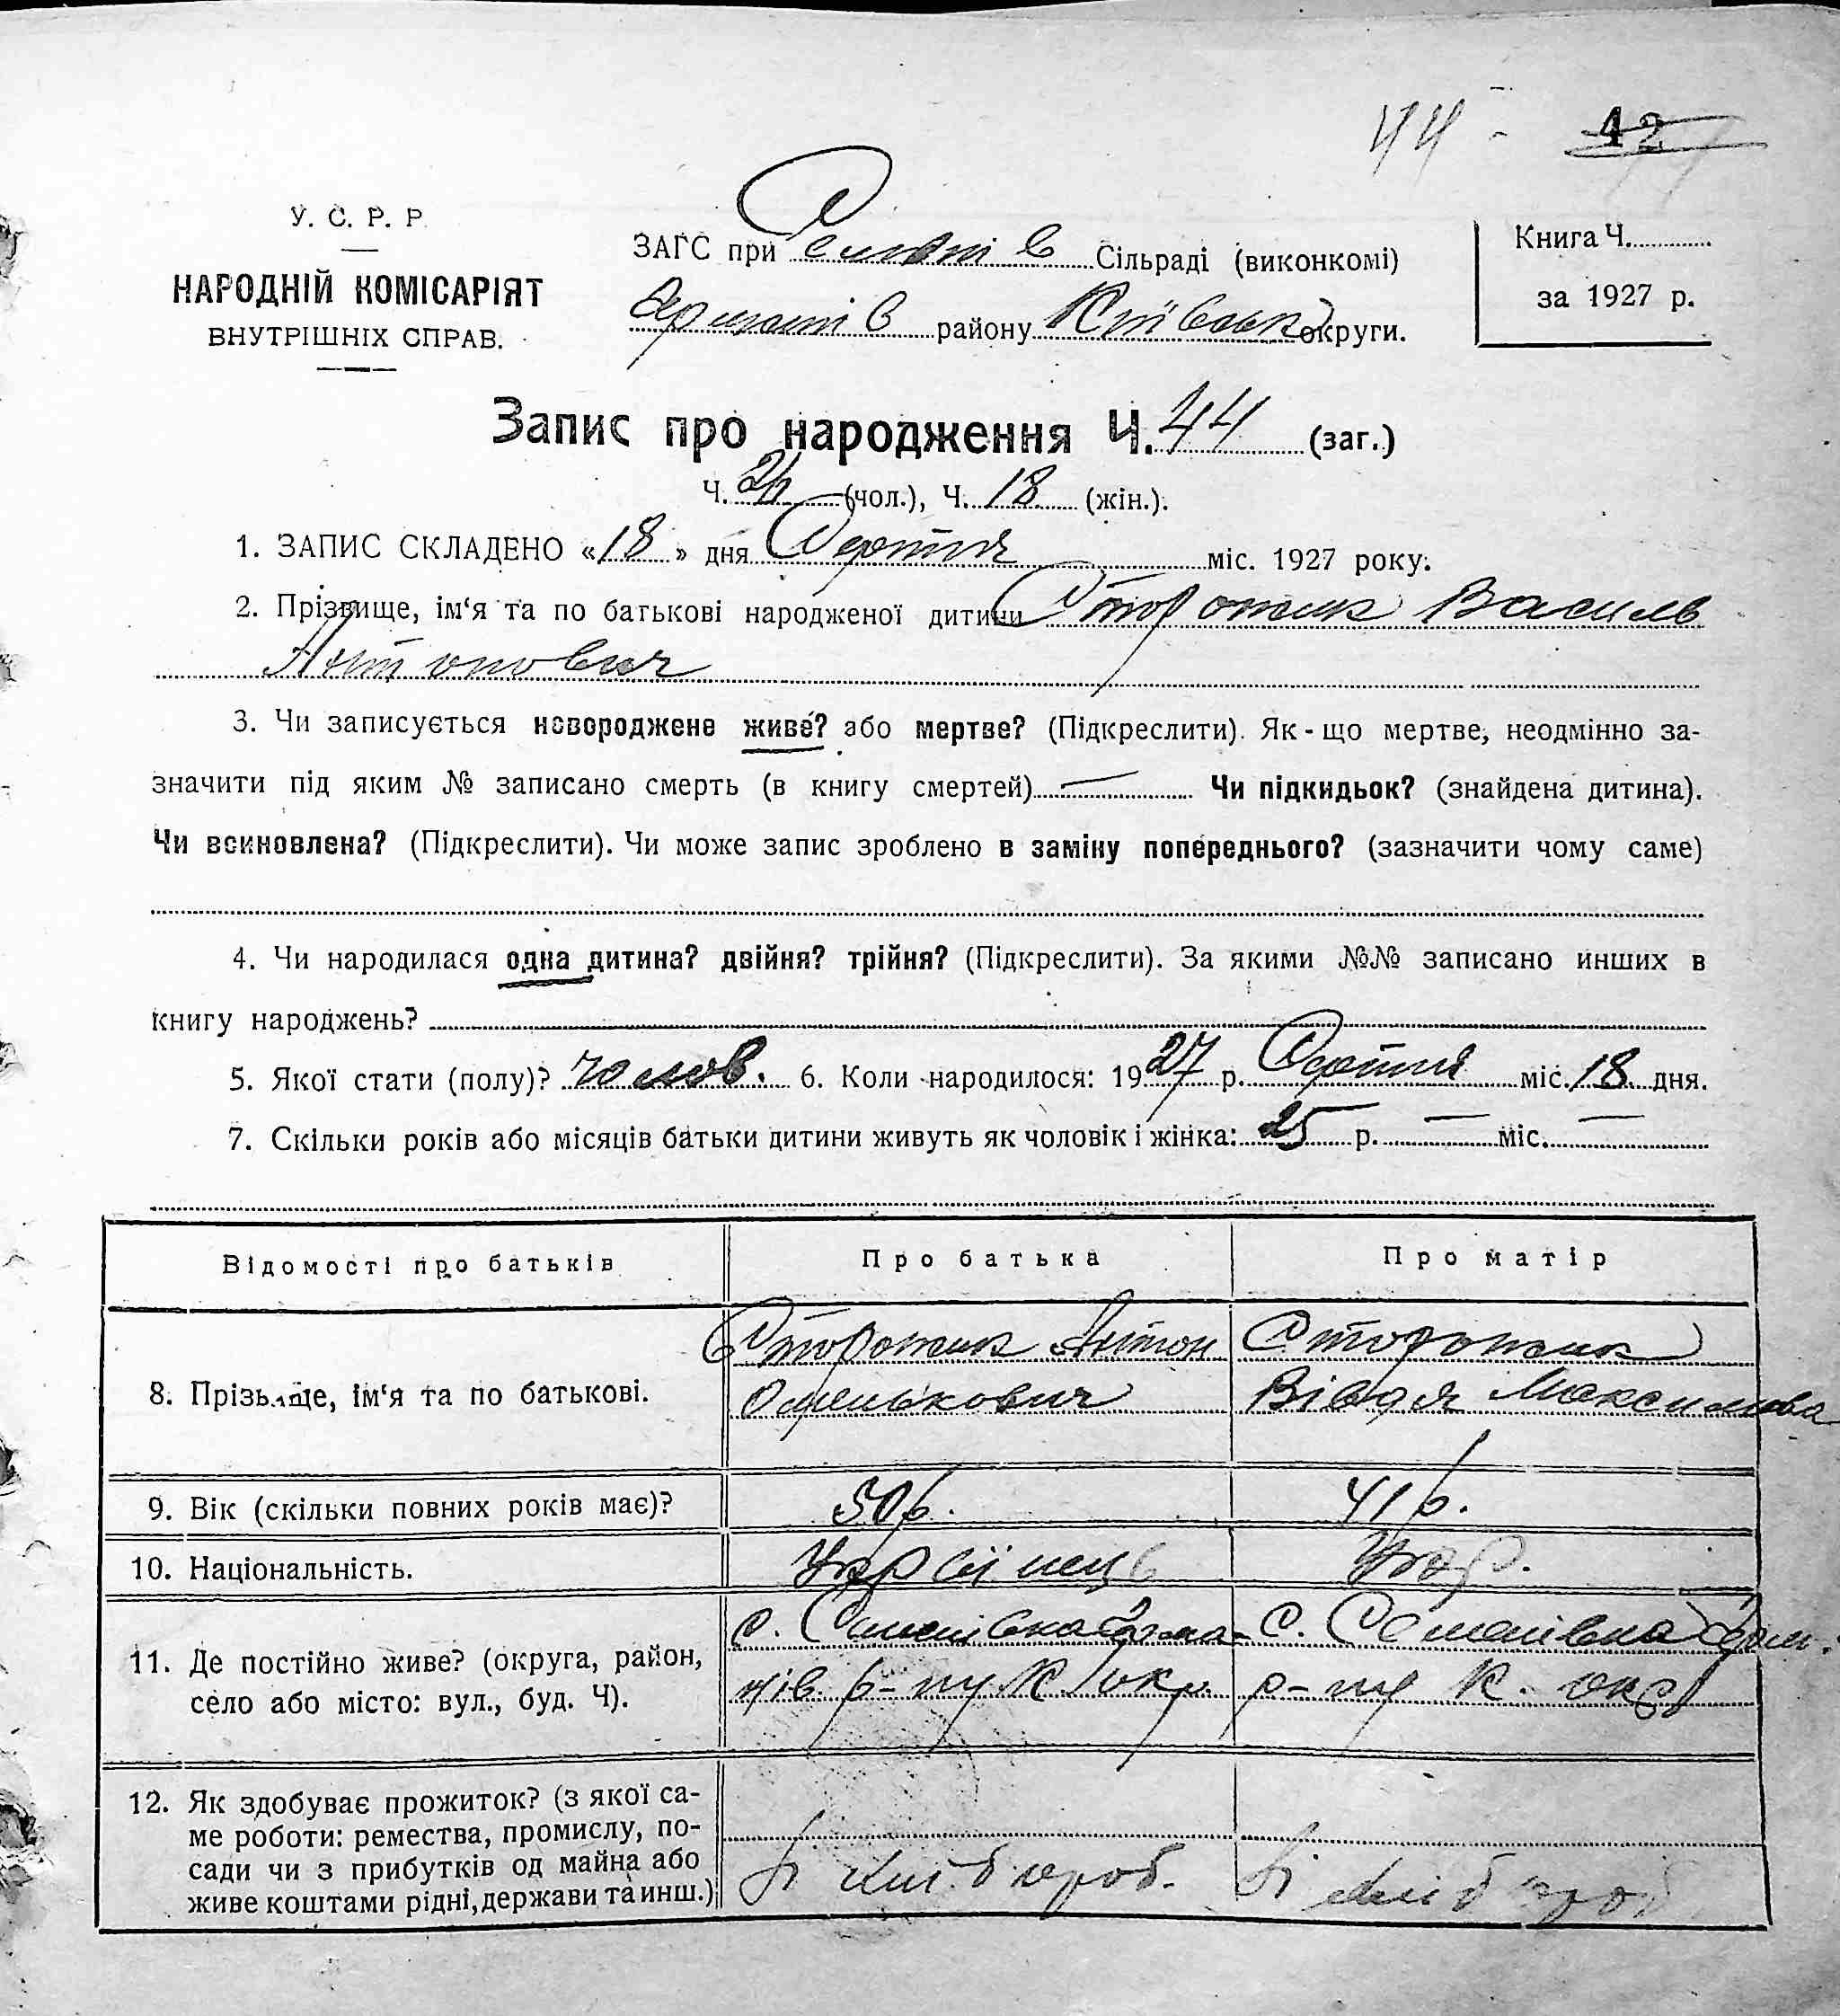 44 - 42
У. С. Р. Р.
НАРОДНІЙ КОМІСАРІЯТ
ВНУТРІШНІХ СПРАВ.
ЗАГС при Семенів Сільраді (виконкомі)
району Київськ округи.
Книга Ч.
за 1927 р.
Запис про народження Ч. 44 (заг.)
Ч. 26 (чол.), Ч. 18 (жін.).
1. ЗАПИС СКЛАДЕНО «18» дня Серпня міс. 1927 року.
2. Прізвище, ім'я та по батькові народженої дитини Сторожик Василь
Антонович
3. Чи записується новороджене живе? або мертве? (Підкреслити). Як-що мертве, неодмінно за-
значити під яким № записано смерть (в книгу смертей) — Чи підкидьок? (знайдена дитина).
Чи всиновлена? (Підкреслити). Чи може запис зроблено в заміну попереднього? (зазначити чому саме)
4. Чи народилася одна дитина? двійня? трійня? (Підкреслити). За якими №№ записано инших в
книгу народжень?
5. Якої стати (полу)? чолов. 6. Коли народилося: 1927 р. Серпня міс. 18 дня.
7. Скільки років або місяців батьки дитини живуть як чоловік і жінка: 25 р. — міс. —
Відомості про батьків Про батька Про матір
8. Прізвище, ім'я та по батькові.
Сторожик Антон
Сторожик
Вівдя Максимова
9. Вік (скільки повних років має)? 50 р. 41 р.
10. Національність. Українець Укр.
11. Де постійно живе? (округа, район,
село або місто: вул., буд. Ч).
с. Семенівка
р-ну К окр.
с. Семенівка
р-ну К. окр
12. Як здобуває прожиток? (з якої са-
ме роботи: ремества, промислу, по-
сади чи з прибутків од майна або
живе коштами рідні, держави та инш.)
Зі хлібороб.
Зі хлібороб